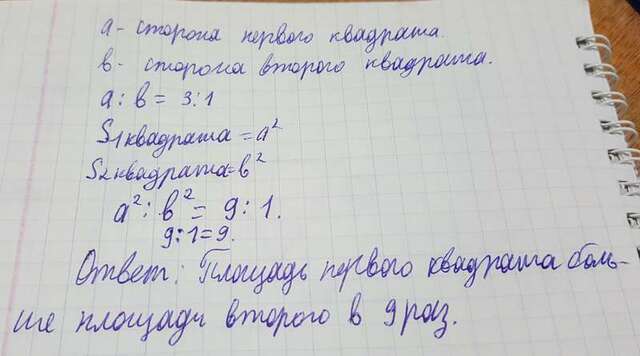 а - сторона первого квадрата.
в - сторона второго квадрата.
а : в = 3:1
S₁ квадрата = а²
S₂ квадрата = в²
а² : в² = 9 : 1.
9:1=9.
Ответ: Площадь первого квадрата боль-
ше площади второго в 9 раз.